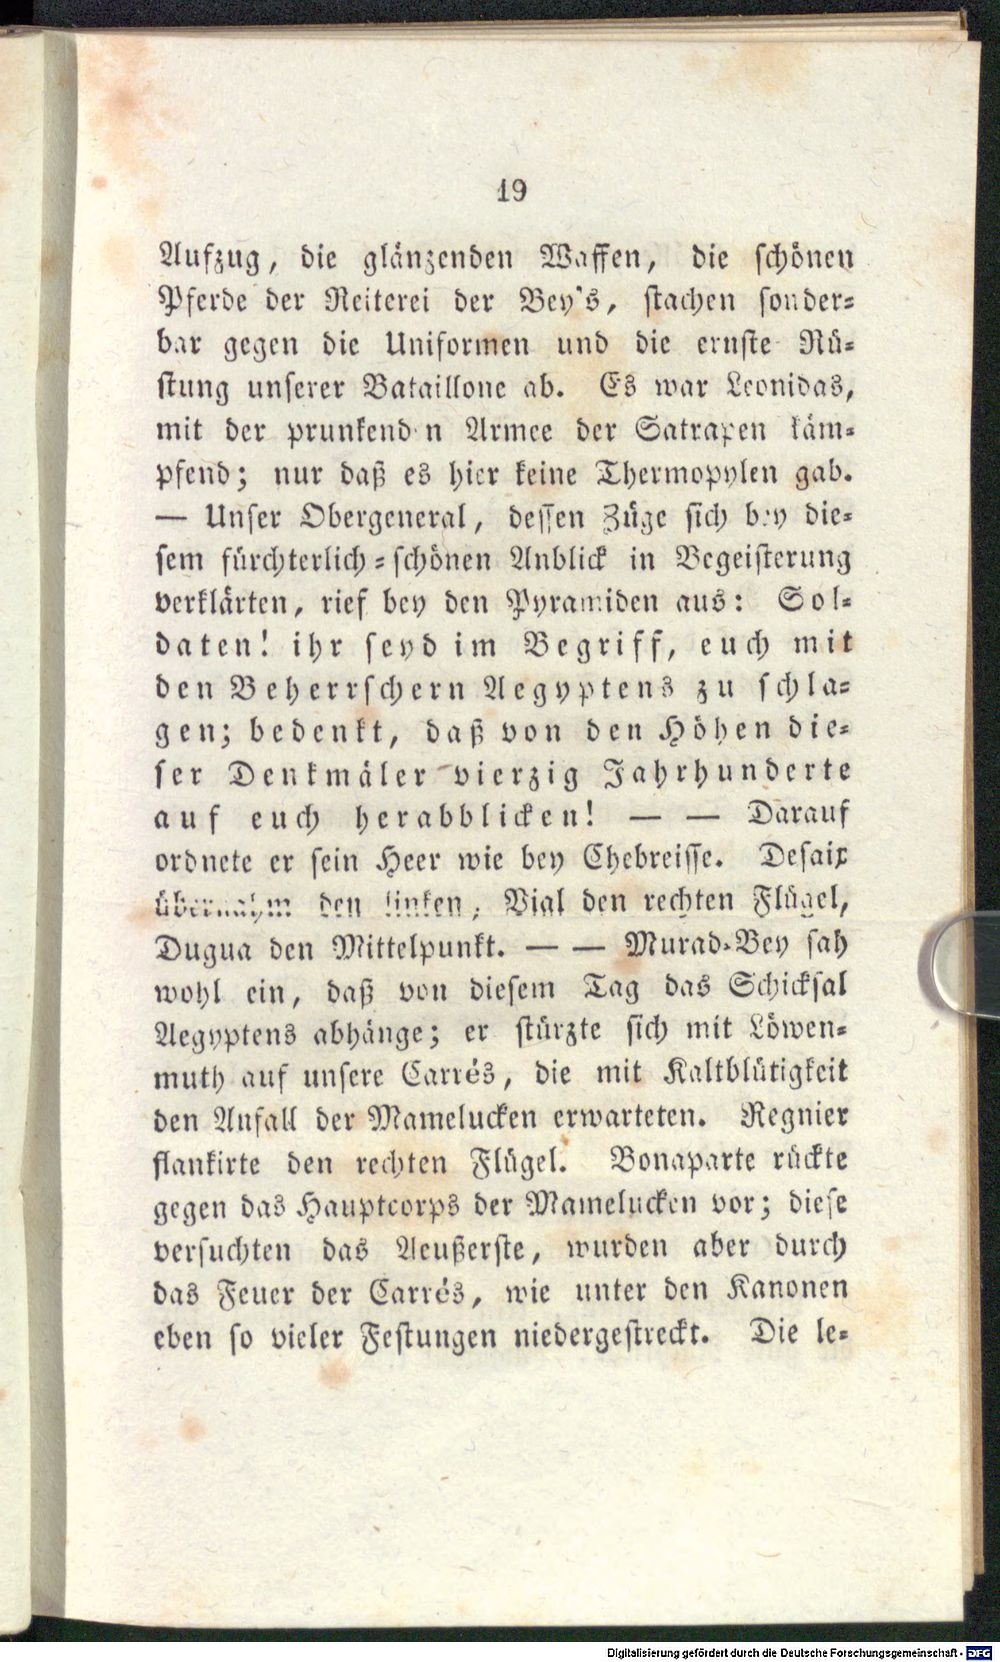 19
Aufzug, die glänzenden Waffen, die schönen
Pferde der Reiterei der Bey's, stachen sonder=
bar gegen die Uniformen und die ernste Rü=
stung unserer Bataillone ab. Es war Leonidas,
mit der prunkenden Armee der Satrapen käm=
pfend; nur daß es hier keine Thermopylen gab.
— Unser Obergeneral, dessen Züge sich bey die=
sem fürchterlich=schönen Anblick in Begeisterung
verklärten, rief bey den Pyramiden aus: Sol=
daten! ihr seyd im Begriff, euch mit
den Beherrschern Aegyptens zu schla=
gen; bedenkt, daß von den Höhen die=
ser Denkmäler vierzig Jahrhunderte
auf euch herabblicken! — — Darauf
ordnete er sein Heer wie bey Chebreisse. Desaix
übernahm den linken, Vial den rechten Flügel,
Dugua den Mittelpunkt. — — Murad=Bey sah
wohl ein, daß von diesem Tag das Schicksal
Aegyptens abhänge; er stürzte sich mit Löwen=
muth auf unsere Carrés, die mit Kaltblütigkeit
den Anfall der Mamelucken erwarteten. Regnier
flankirte den rechten Flügel. Bonaparte rückte
gegen das Hauptcorps der Mamelucken vor; diese
versuchten das Aeußerste, wurden aber durch
das Feuer der Carrés, wie unter den Kanonen
eben so vieler Festungen niedergestreckt. Die le=
Digitalisierung gefördert durch die Deutsche Forschungsgemeinschaft - DFG